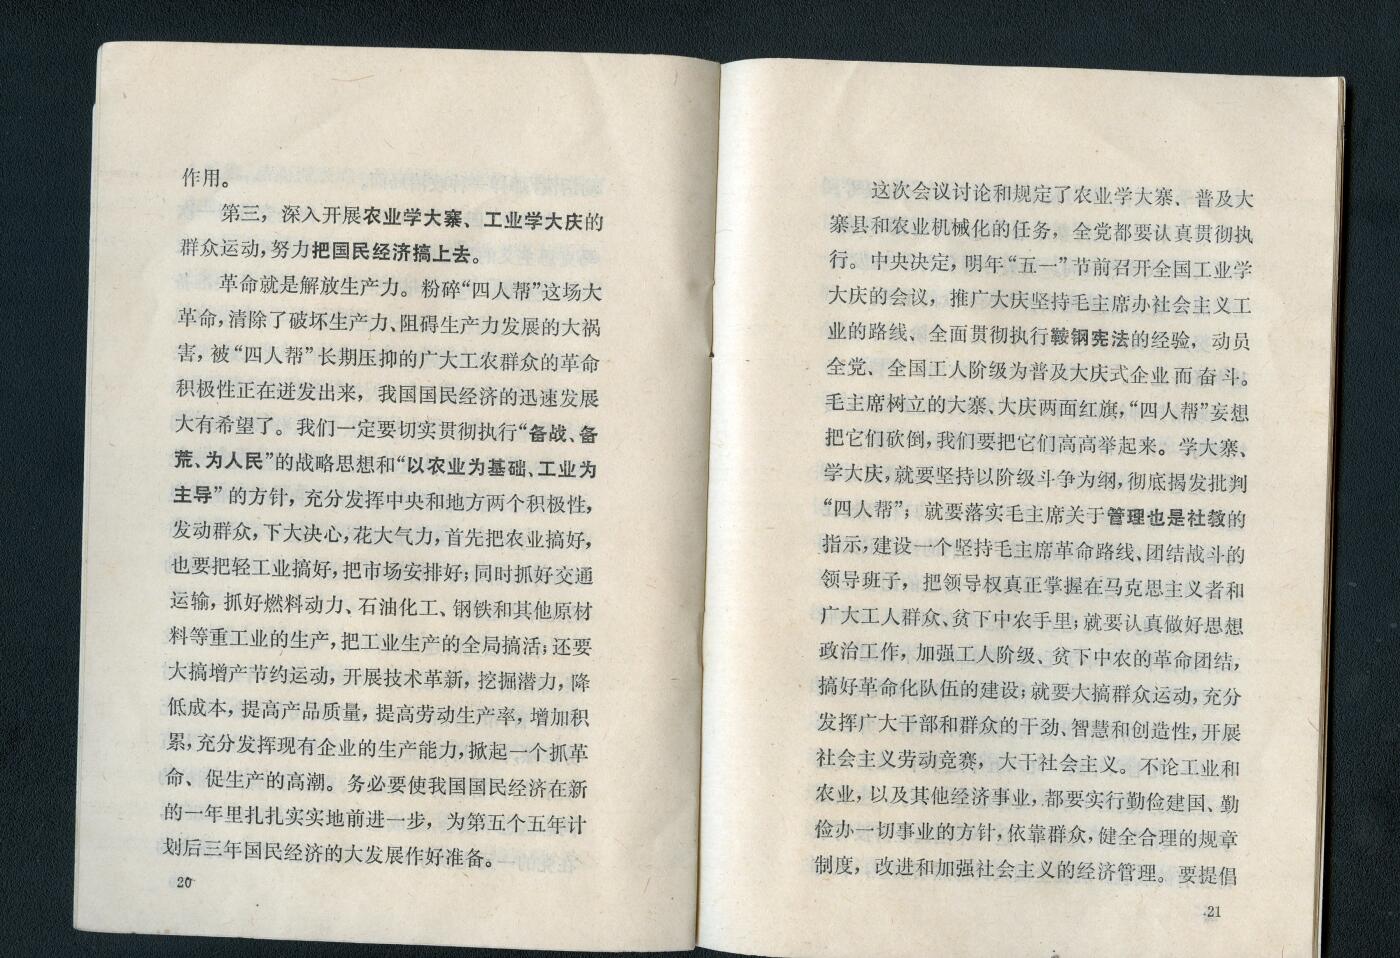 作用。
第三，深入开展农业学大寨、工业学大庆的
群众运动，努力把国民经济搞上去。
革命就是解放生产力。粉碎“四人帮”这场大
革命，清除了破坏生产力、阻碍生产力发展的大祸
害，被“四人帮”长期压抑的广大工农群众的革命
积极性正在迸发出来，我国国民经济的迅速发展
大有希望了。我们一定要切实贯彻执行“备战、备
荒、为人民”的战略思想和“以农业为基础、工业为
主导”的方针，充分发挥中央和地方两个积极性，
发动群众，下大决心，花大气力，首先把农业搞好，
也要把轻工业搞好，把市场安排好；同时抓好交通
运输，抓好燃料动力、石油化工、钢铁和其他原材
料等重工业的生产，把工业生产的全局搞活；还要
大搞增产节约运动，开展技术革新，挖掘潜力，降
低成本，提高产品质量，提高劳动生产率，增加积
累，充分发挥现有企业的生产能力，掀起一个抓革
命、促生产的高潮。务必要使我国国民经济在新
的一年里扎扎实实地前进一步，为第五个五年计
划后三年国民经济的大发展作好准备。
20
这次会议讨论和规定了农业学大寨、普及大
寨县和农业机械化的任务，全党都要认真贯彻执
行。中央决定，明年“五一”节前召开全国工业学
大庆的会议，推广大庆坚持毛主席办社会主义工
业的路线、全面贯彻执行鞍钢宪法的经验，动员
全党、全国工人阶级为普及大庆式企业而奋斗。
毛主席树立的大寨、大庆两面红旗，“四人帮”妄想
把它们砍倒，我们要把它们高高举起来。学大寨、
学大庆，就要坚持以阶级斗争为纲，彻底揭发批判
“四人帮”；就要落实毛主席关于管理也是社教的
指示，建设一个坚持毛主席革命路线、团结战斗的
领导班子，把领导权真正掌握在马克思主义者和
广大工人群众、贫下中农手里；就要认真做好思想
政治工作，加强工人阶级、贫下中农的革命团结，
搞好革命化队伍的建设；就要大搞群众运动，充分
发挥广大干部和群众的干劲、智慧和创造性，开展
社会主义劳动竞赛，大干社会主义。不论工业和
农业，以及其他经济事业，都要实行勤俭建国、勤
俭办一切事业的方针，依靠群众，健全合理的规章
制度，改进和加强社会主义的经济管理。要提倡
21